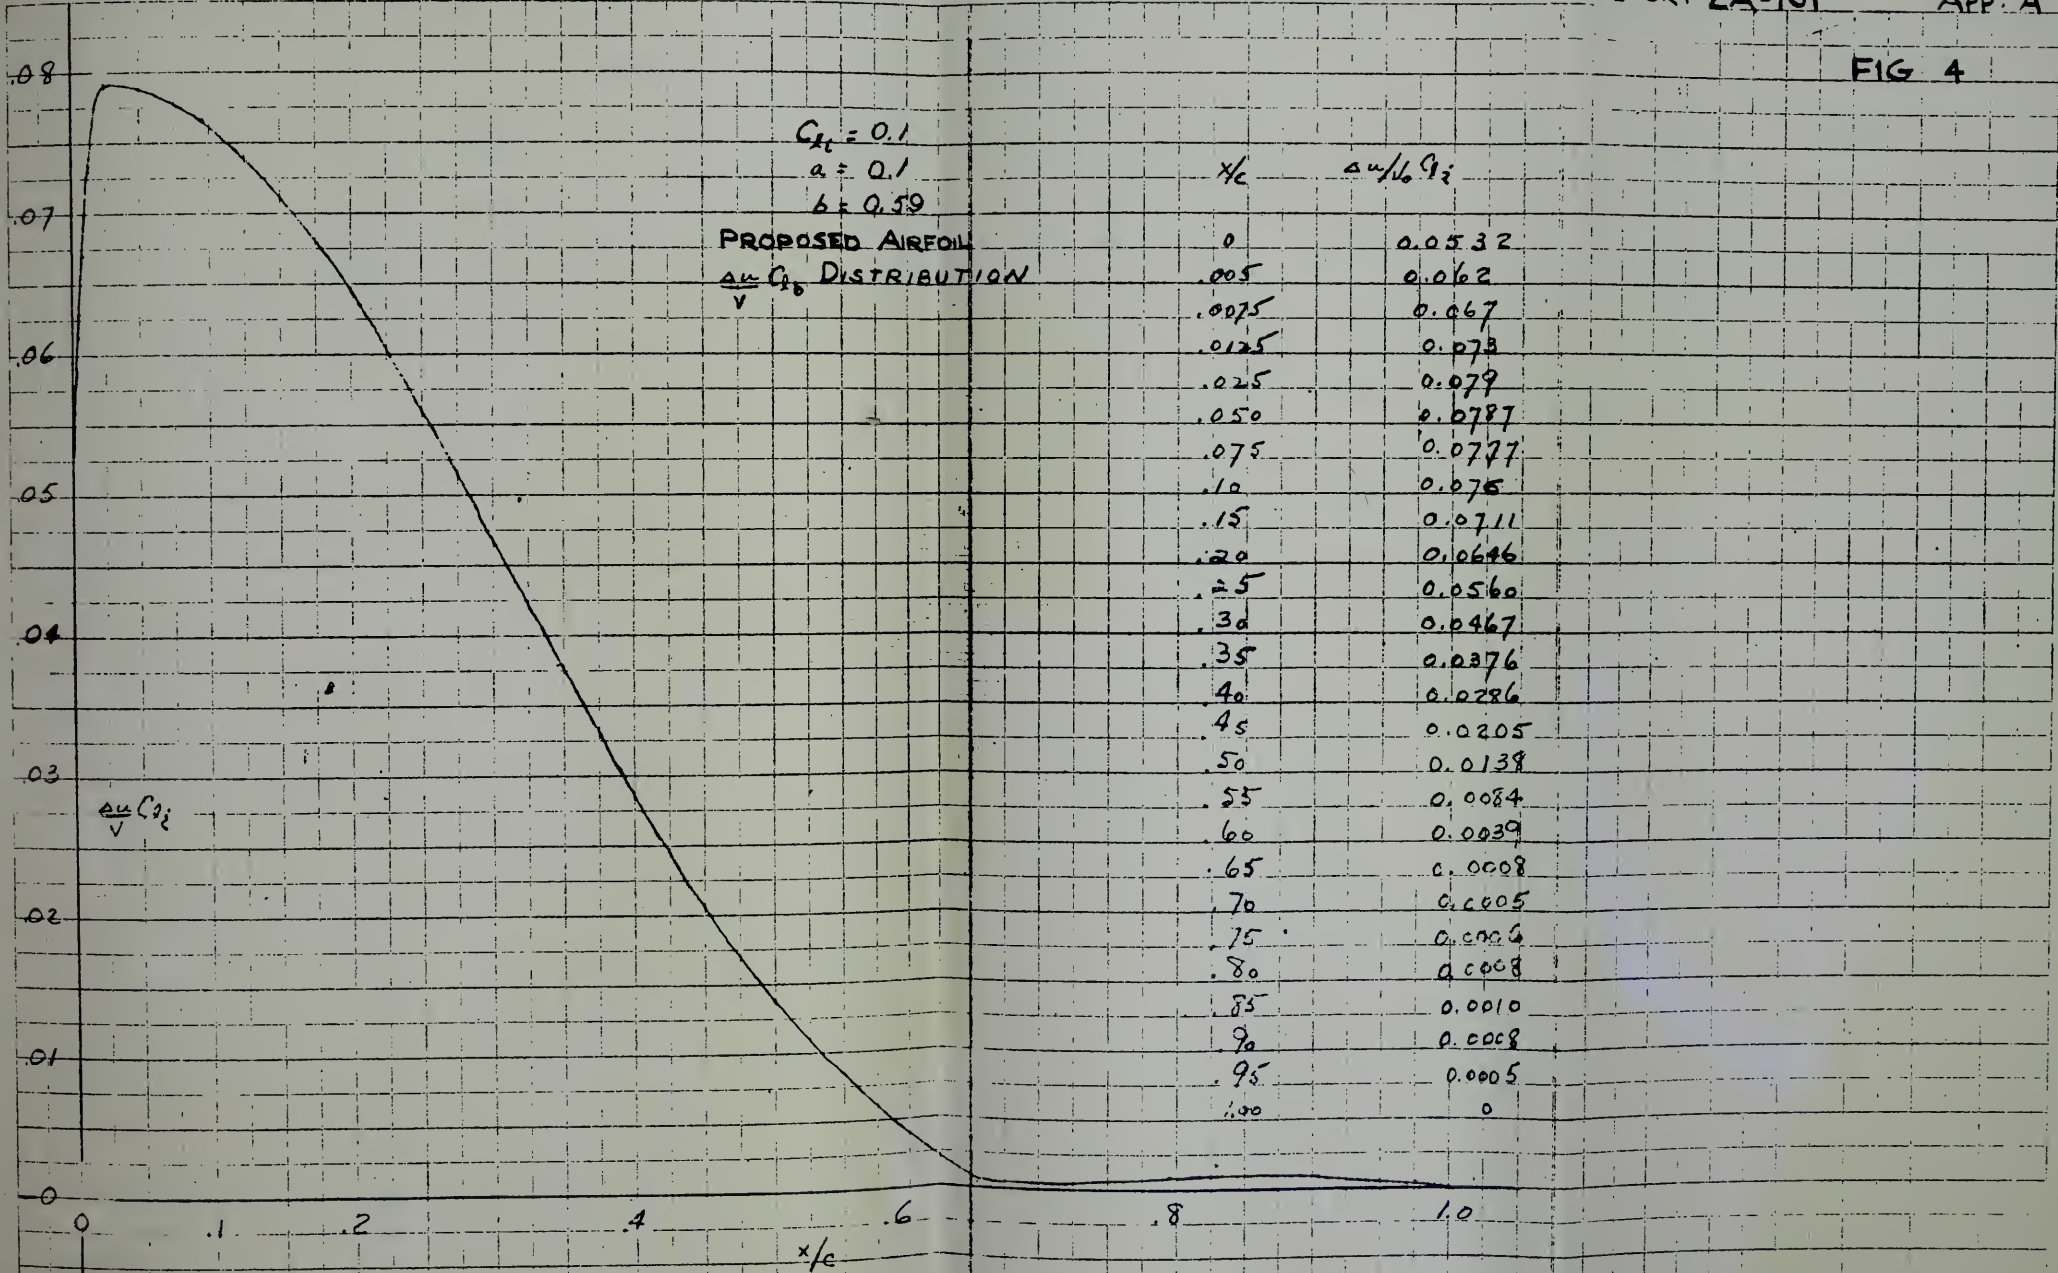 ZA-101 APP. A
FIG 4
.08
.07
.06
.05
.04
.03
.02
.01
0
Δu/V Cli
Cli = 0.1
a = 0.1
b = 0.59
PROPOSED AIRFOIL
Δu/V Clb DISTRIBUTION
x/c Δu/Vo Cli
0 0.0532
.005 0.062
.0075 0.067
.0125 0.073
.025 0.079
.050 0.0787
.075 0.0777
.10 0.076
.15 0.0711
.20 0.0646
.25 0.0560
.30 0.0467
.35 0.0376
.40 0.0286
.45 0.0205
.50 0.0138
.55 0.0084
.60 0.0039
.65 0.0008
.70 0.0005
.75 0.0006
.80 0.0008
.85 0.0010
.90 0.0008
.95 0.0005
1.00 0
0 .1 .2 .4 .6 .8 1.0
x/c